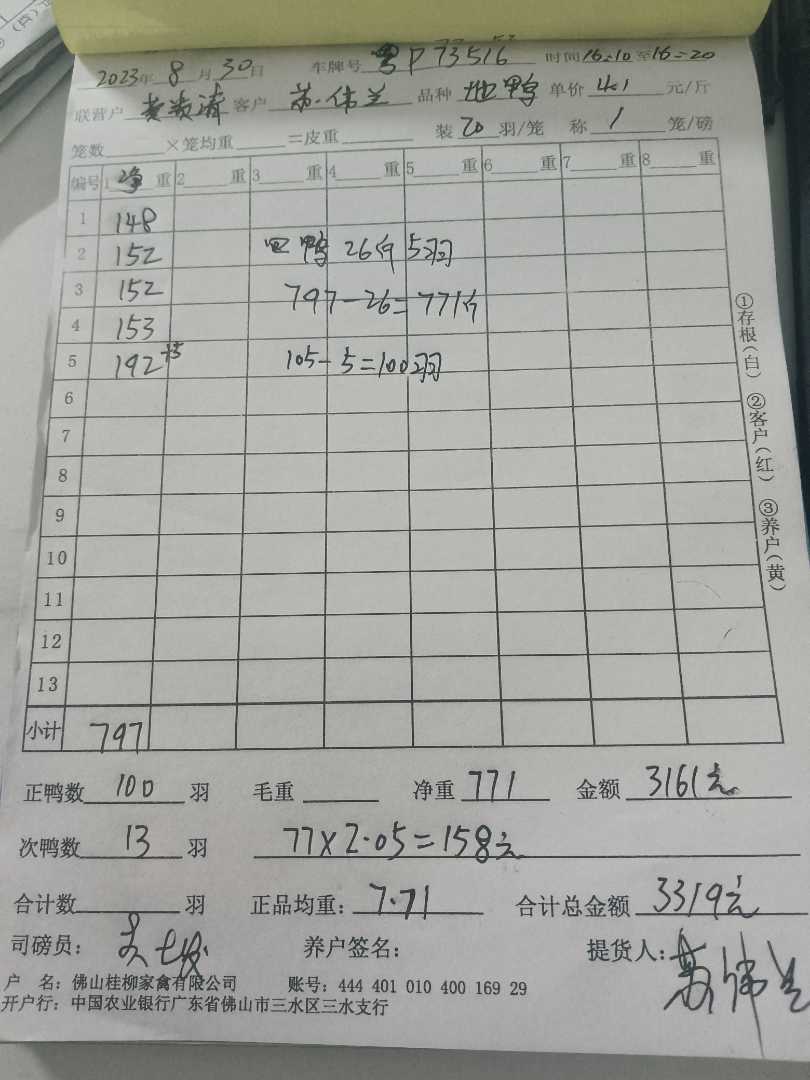 2023年 8 月 30 日 车牌号 粤P73516 时间 16:10 至 16:20
联营户 客户 苏伟兰 品种 地鸭 单价 4.1 元/斤
笼数 ×笼均重 =皮重 装 20 羽/笼 称 1 笼/磅
编号 1 净 重 2 重 3 重 4 重 5 重 6 重 7 重 8 重
1 148
2 152 鸭 26斤 5羽
3 152 797-26=771斤
4 153
5 192 105-5=100羽
6
7
8
9
10
11
12
13
小计 797
①存根(白) ②客户(红) ③养户(黄)
正鸭数 100 羽 毛重 净重 771 金额 3161元
次鸭数 13 羽 77×2.05=158元
合计数 羽 正品均重: 7.71 合计总金额 3319元
司磅员: 养户签名: 提货人: 苏伟兰
户 名: 佛山桂柳家禽有限公司 账号: 444 401 010 400 169 29
开户行: 中国农业银行广东省佛山市三水区三水支行